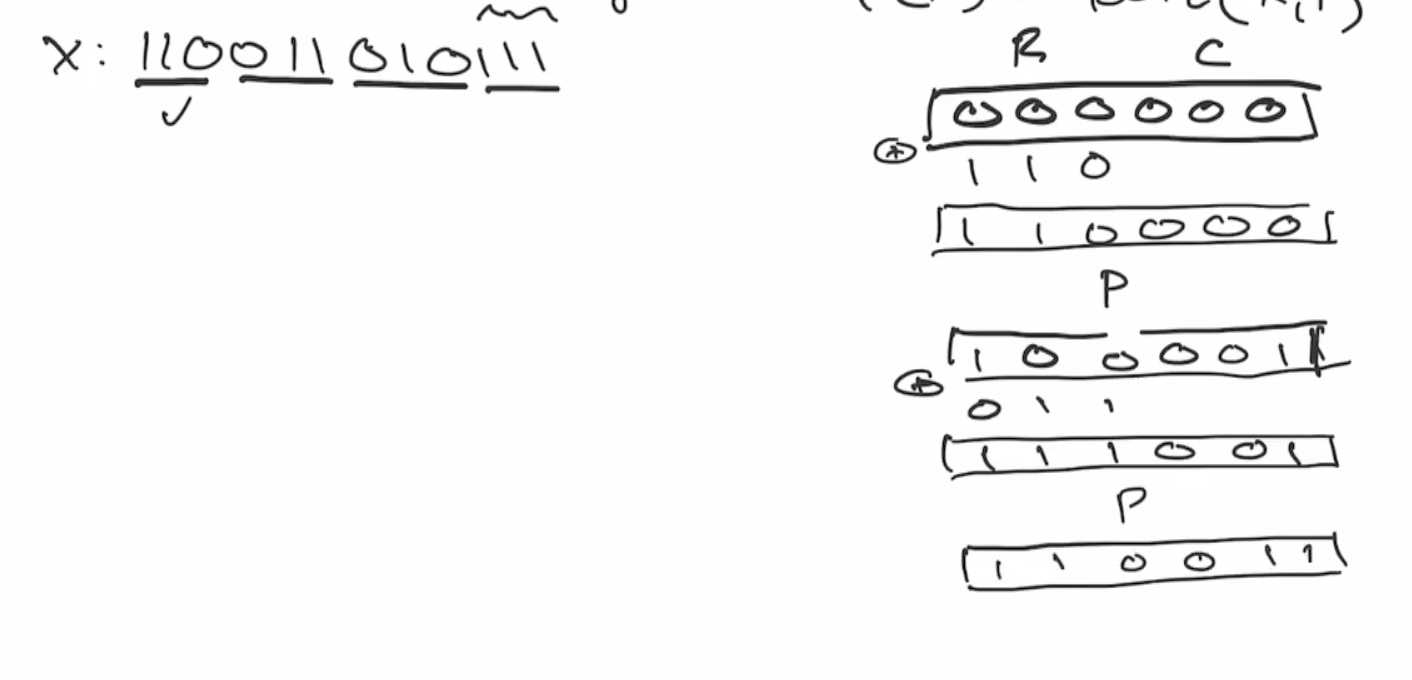 X: 110011010111
R C
0 0 0 0 0 0
⊕
1 1 0
1 1 0 0 0 0
P
1 0 0 0 0 1
⊕
0 1 1
1 1 1 0 0 1
P
1 1 0 0 1 1